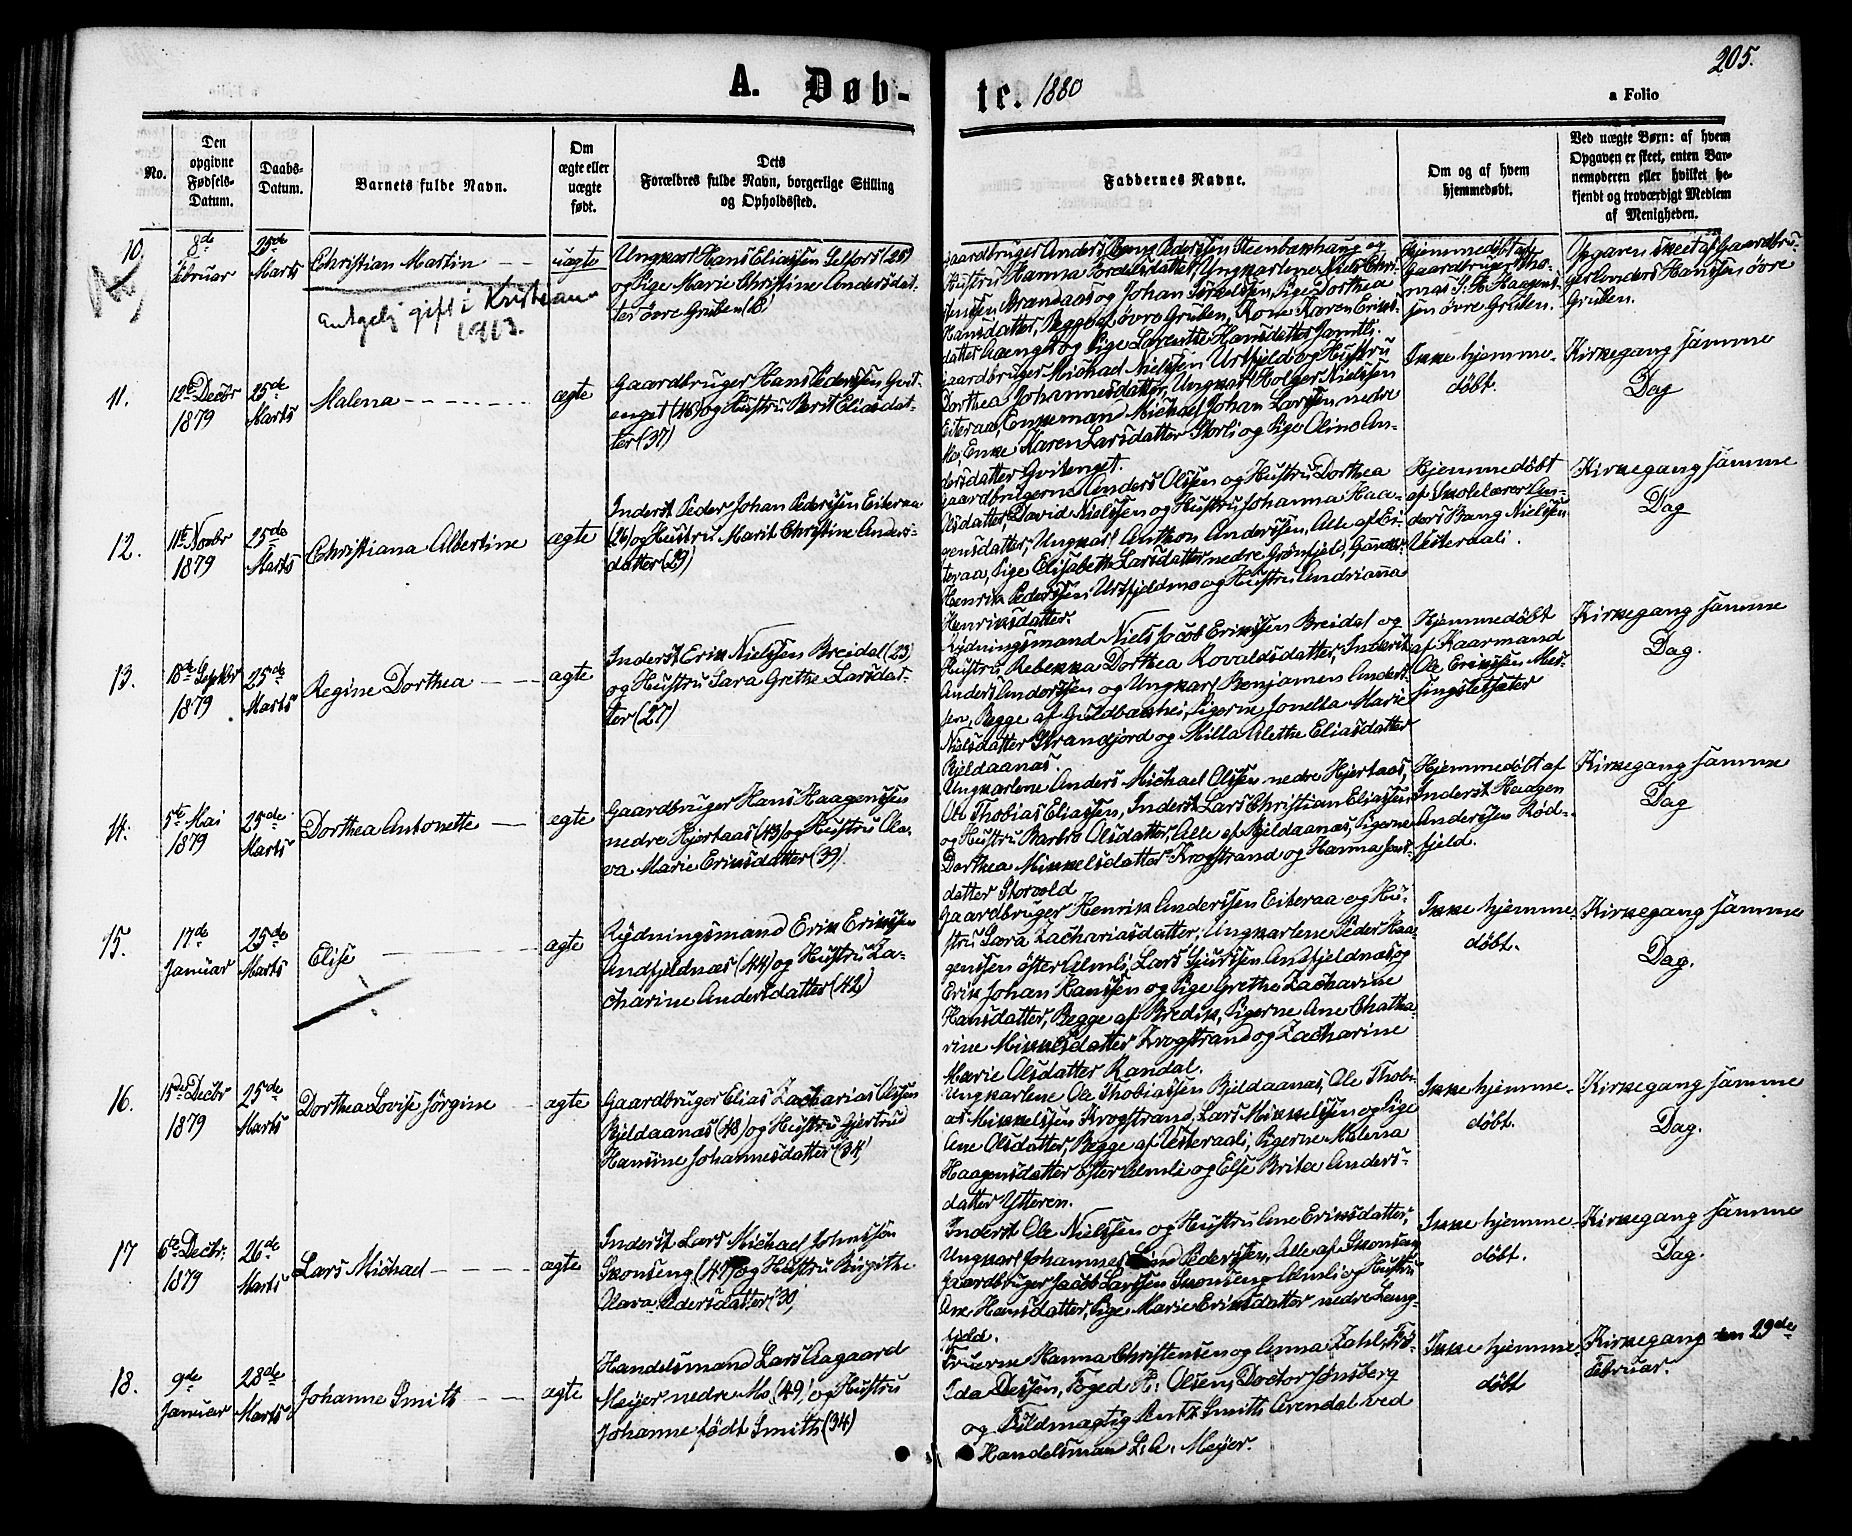 205.
A. Døb-
te. 1880
a Folio
No.
Den
opgivne
Fødsels-
Datum.
Daabs-
Datum.
Barnets fulde Navn.
Om
ægte eller
uægte
født.
Dets
Forældres fulde Navn, borgerlige Stilling
og Opholdssted.
Faddernes Navne.
Om og af hvem
hjemmedøbt.
Ved uægte Børn: af hvem
Opgaven er skeet, enten Bar-
nemoderen eller hvilket be-
kjendt og troværdigt Medlem
af Menigheden.
10.
8de
Februar
25de
Marts
Christian Martin
Antgelg gift i Kristian
1913.
uægte
Ungkarl Hans Eliassen Selfors (25)
og Pige Marie Christine Andersdat-
ter øvre Gruben
Gaardbruger Anders Pedersen Steenbækhaug og
Hustru Hanna Ungkarlene Niels Chri-
stensen Brandaas og Johan Pige Dorthea
Hansdatter, Begge af øvre Gruben, Kone Karen Eriks-
datter og Pige Lorentse Hansdatter
Hjemmedøbt af
Gaardbruger Tho-
mas Haagens-
sen øvre Gruben.
Opgaven skeet af Gaardbru-
ger Anders Hanssen øvre
Gruben.
11.
12te Decbr
1879
25de
Marts
Malena
ægte
Gaardbruger Hans Pedersen Gvit-
enget (46) og Hustru Berit Eliasdat-
ter (37)
Gaardbruger Michael Nielssen Urtfjeld og Hustru
Dorthea Johannesdatter, Ungkarl Holger Nielssen
Eiteraa, Enkemand Michael Johan Larssen nedre
Mo, Enke Karen Larsdatter Storli og Pige Oline An-
dersdatter Gvitenget.
Ikke hjemme-
døbt.
Kirkegang samme
Dag
12.
11te Novbr
1879
25de
Marts
Christiana Albertine
ægte
Inderst Peder Johan Pederssen Eiteraa
(26) og Hustru Marit Christine Anders-
datter (29)
Gaardbrugerne Anders Olssen og Hustru Dorthea
Olsdatter, David Nielssen og Hustru Johanna Haa-
gensdatter, Ungkarl Anthon Anderssen, Alle af Ei-
teraa, Pige Elisabeth Larsdatter nedre Grønfjeld, Gaardbr.
Henrik Pederssen Urtfjeldmo og Hustru Andrianna
Henriksdatter.
Hjemmedøbt
af Skolelærer An-
ders Bang Nielssen
Aiteraali.
Kirkegang samme
Dag
13.
18de Septbr
1879
25de
Marts
Regine Dorthea
ægte
Inderst Erik Nielssen Breidal (23)
og Hustru Sara Grethe Larsdat-
ter (27)
Rydningsmand Niels Jacob Erikssen Breidal og
Hustru Rebekka Dorthea Rovaldsdatter, Inderst
Anders Anderssen og Ungkarl Benjamen Anders-
sen, Begge af Guldbækhei, Pigerne Jonetta Marie
Nielsdatter Strandjord og Milla Alethe Eliasdatter
Bjeldaanæs.
Hjemmedøbt
af Kaarmand
Ole Erikssen Mes-
singsletsæter
Kirkegang samme
Dag.
14.
5te Mai
1879
25de
Marts
Dorthea Antonette
ægte
Gaardbruger Hans Haagenssen
nedre Hjertaas (43) og Hustru Ola-
va Marie Eriksdatter (39)
Ungkarlene Anders Michael Olssen nedre Hjertaas,
Ole Thobias Eliassen, Inderst Lars Christian Eliassen
og Hustru Barbro Olsdatter, Alle af Bjeldaanæs, Pigerne
Dorthea Mikkelsdatter Krogstrand og Hanna Jens-
datter Storvold
Hjemmedøbt af
Inderst Haagen
Anderssen Rød-
fjeld.
Kirkegang samme
Dag
15.
17de
Januar
25de
Marts
Elise
ægte
Rydningsmand Erik Erikssen
Andfjeldnæs (44) og Hustru Za-
charine Andersdatter (42)
Gaardbruger Henrik Anderssen Eiteraa og Hu-
stru Sara Zachariasdatter, Ungkarlene Peder Haa-
genssen øster Almli, Lars Sjurssen Andfjeldnæs og
Erik Johan Hanssen og Pige Grethe Zacharine
Hansdatter, Begge af Bredik, Pigerne Ane Chatha-
rine Mikkelsdatter Krogstrand og Zacharine
Marie Olsdatter Randal.
Ikke hjemme-
døbt.
Kirkegang samme
Dag.
16.
15de Decbr
1879
25de
Marts
Dorthea Lovise Jørgine
ægte
Gaardbruger Elias Zacharias Olssen
Bjeldaanæs (48) og Hustru Gjertrud
Hansine Johannesdatter (34)
Ungkarlene Ole Thobiassen Bjeldaanæs, Ole Thobi-
as Mikkelssen Krogstrand, Lars Mikkelssen og Pige
Ane Olsdatter, Begge af Aiteraali, Pigerne Malena
Haagensdatter øster Almli og Else Brita Anders-
datter Ytteren.
Ikke hjemme-
døbt.
Kirkegang samme
Dag.
17
6te Decbr.
1879
26de
Marts
Lars Michael
ægte
Inderst Lars Michael Johnssøn
Skonseng (47) og Hustru Birgithe
Olava Pedersdatter (30)
Inderst Ole Nielssen og Hustru Ane Eriksdatter,
Ungkarl Johannes Pederssen, Alle af Skonseng
Gaardbruger Jacob Larssen Skonseng Almli og Hustru
Ane Hansdatter, Pige Marie Eriksdatter nedre Lang-
Ikke hjemme-
døbt.
Kirkegang samme
Dag.
18.
9de
Januar
28de
Marts
Johanne Smith
ægte
Handelsmand Lars Aagaard
Meyer nedre Mo (49) og Hustru
Johanne født Smith (34)
Fruerne Hanna Christensen og Anna Zahl, Frø-
Ida Dessen, Foged H. Olsen, Doctor Jønsberg
og Fuldmægtig Bentz Smith Arendal ved
Handelsman L. A. Meyer.
Ikke hjemme-
døbt
Kirkegang den 29de
Februar.